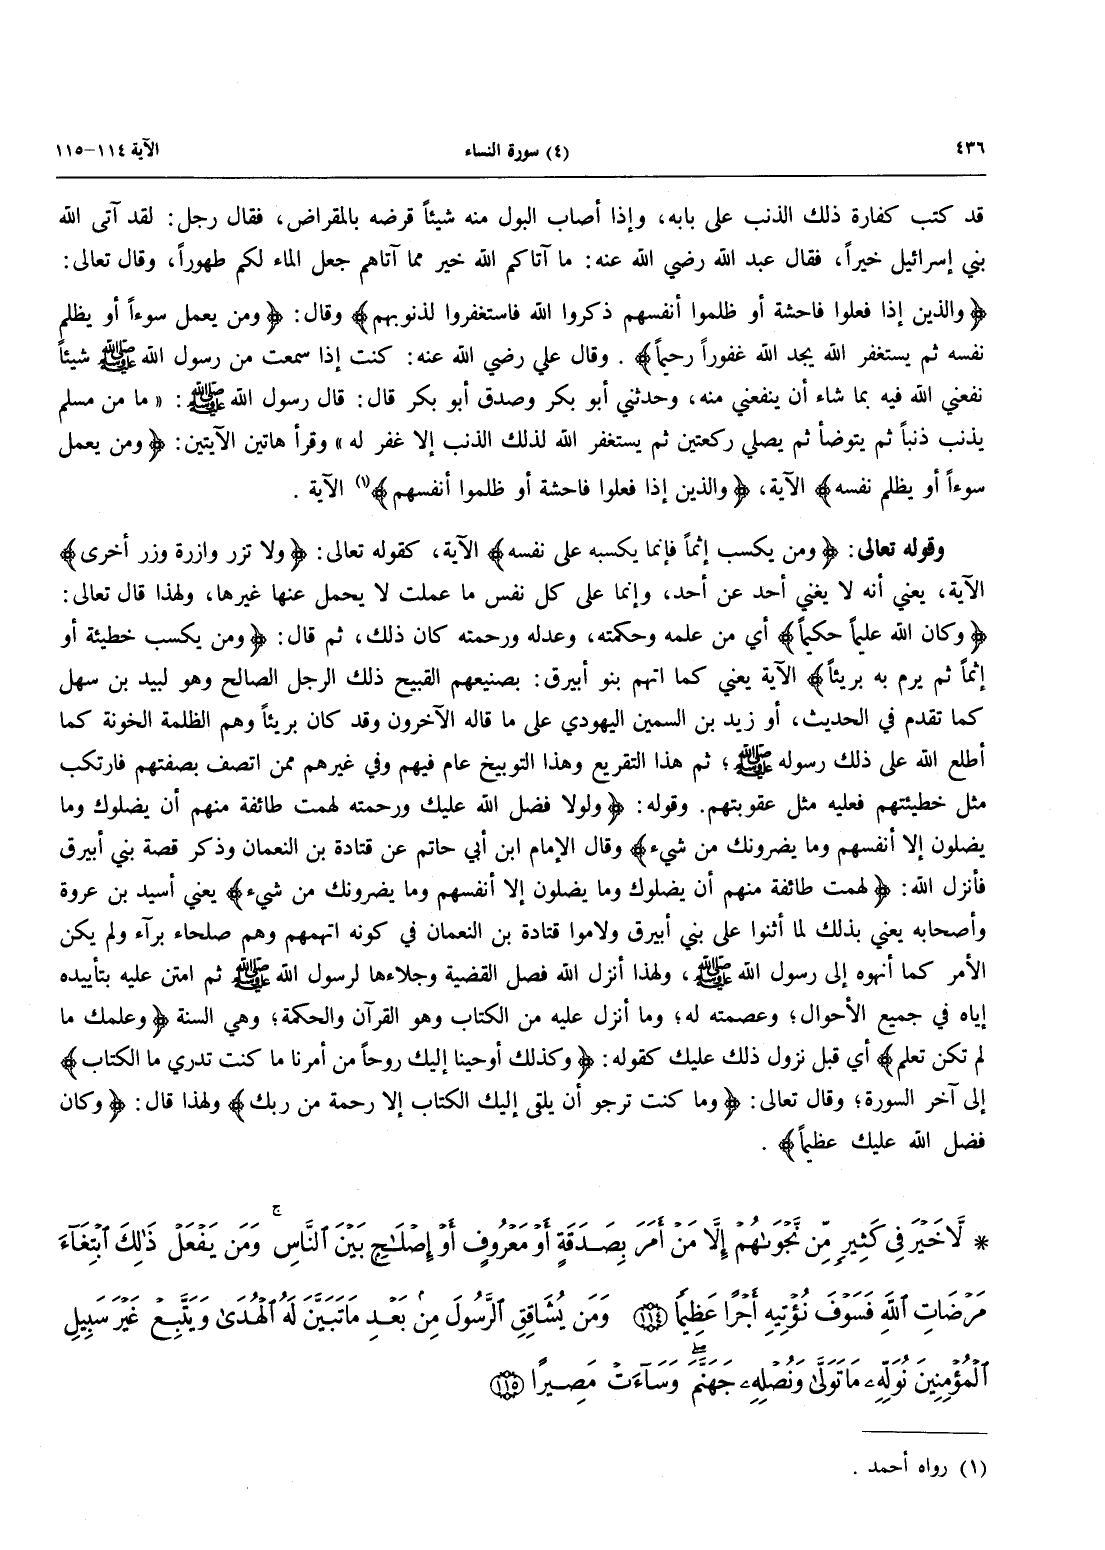 ٤٣٦ (٤) سورة النساء الآية ١١٤-١١٥
قد كتب كفارة ذلك الذنب على بابه، وإذا أصاب البول منه شيئاً قرضه بالمقراض، فقال رجل: لقد آتى الله
بني إسرائيل خيراً، فقال عبد الله رضي الله عنه: ما آتاكم الله خير مما آتاهم جعل الماء لكم طهوراً، وقال تعالى:
﴿والذين إذا فعلوا فاحشة أو ظلموا أنفسهم ذكروا الله فاستغفروا لذنوبهم﴾ وقال: ﴿ومن يعمل سوءاً أو يظلم
نفسه ثم يستغفر الله يجد الله غفوراً رحيماً﴾. وقال علي رضي الله عنه: كنت إذا سمعت من رسول الله ﷺ شيئاً
نفعني الله فيه بما شاء أن ينفعني منه، وحدثني أبو بكر وصدق أبو بكر قال: قال رسول الله ﷺ: « ما من مسلم
يذنب ذنباً ثم يتوضأ ثم يصلي ركعتين ثم يستغفر الله لذلك الذنب إلا غفر له » وقرأ هاتين الآيتين: ﴿ومن يعمل
سوءاً أو يظلم نفسه﴾ الآية، ﴿والذين إذا فعلوا فاحشة أو ظلموا أنفسهم﴾(١) الآية .
وقوله تعالى: ﴿ومن يكسب إثماً فإنما يكسبه على نفسه﴾ الآية، كقوله تعالى: ﴿ولا تزر وازرة وزر أخرى﴾
الآية، يعني أنه لا يغني أحد عن أحد، وإنما على كل نفس ما عملت لا يحمل عنها غيرها، ولهذا قال تعالى:
﴿وكان الله عليماً حكيماً﴾ أي من علمه وحكمته، وعدله ورحمته كان ذلك، ثم قال: ﴿ومن يكسب خطيئة أو
إثماً ثم يرم به بريئاً﴾ الآية يعني كما اتهم بنو أبيرق: بصنيعهم القبيح ذلك الرجل الصالح وهو لبيد بن سهل
كما تقدم في الحديث، أو زيد بن السمين اليهودي على ما قاله الآخرون وقد كان بريئاً وهم الظلمة الخونة كما
أطلع الله على ذلك رسوله ﷺ؛ ثم هذا التقريع وهذا التوبيخ عام فيهم وفي غيرهم ممن اتصف بصفتهم فارتكب
مثل خطيئتهم فعليه مثل عقوبتهم. وقوله: ﴿ولولا فضل الله عليك ورحمته لهمت طائفة منهم أن يضلوك وما
يضلون إلا أنفسهم وما يضرونك من شيء﴾ وقال الإمام ابن أبي حاتم عن قتادة بن النعمان وذكر قصة بني أبيرق
فأنزل الله: ﴿لهمت طائفة منهم أن يضلوك وما يضلون إلا أنفسهم وما يضرونك من شيء﴾ يعني أسيد بن عروة
وأصحابه يعني بذلك لما أثنوا على بني أبيرق ولاموا قتادة بن النعمان في كونه اتهمهم وهم صلحاء برآء ولم يكن
الأمر كما أنهوه إلى رسول الله ﷺ، ولهذا أنزل الله فصل القضية وجلاءها لرسول الله ﷺ ثم امتن عليه بتأييده
إياه في جميع الأحوال؛ وعصمته له؛ وما أنزل عليه من الكتاب وهو القرآن والحكمة؛ وهي السنة ﴿وعلمك ما
لم تكن تعلم﴾ أي قبل نزول ذلك عليك كقوله: ﴿وكذلك أوحينا إليك روحاً من أمرنا ما كنت تدري ما الكتاب﴾
إلى آخر السورة؛ وقال تعالى: ﴿وما كنت ترجو أن يلقى إليك الكتاب إلا رحمة من ربك﴾ ولهذا قال: ﴿وكان
فضل الله عليك عظيماً﴾ .
* لَّا خَيْرَ فِى كَثِيرٍ مِّن نَّجْوَىٰهُمْ إِلَّا مَنْ أَمَرَ بِصَدَقَةٍ أَوْ مَعْرُوفٍ أَوْ إِصْلَٰحٍ بَيْنَ ٱلنَّاسِ ۚ وَمَن يَفْعَلْ ذَٰلِكَ ٱبْتِغَآءَ
مَرْضَاتِ ٱللَّهِ فَسَوْفَ نُؤْتِيهِ أَجْرًا عَظِيمًا ﴿١١٤﴾ وَمَن يُشَاقِقِ ٱلرَّسُولَ مِنۢ بَعْدِ مَا تَبَيَّنَ لَهُ ٱلْهُدَىٰ وَيَتَّبِعْ غَيْرَ سَبِيلِ
ٱلْمُؤْمِنِينَ نُوَلِّهِۦ مَا تَوَلَّىٰ وَنُصْلِهِۦ جَهَنَّمَ ۖ وَسَآءَتْ مَصِيرًا ﴿١١٥﴾
(١) رواه أحمد .